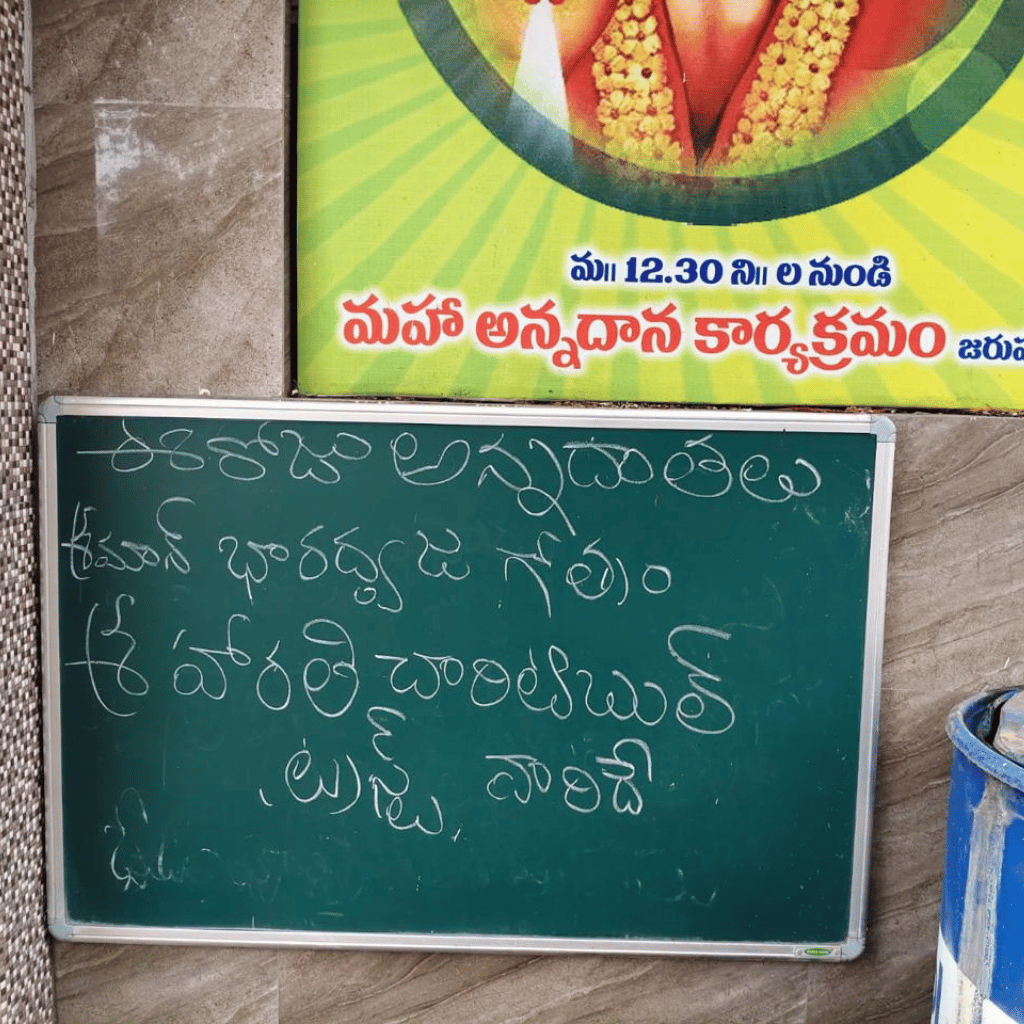 మ॥ 12.30 ని॥ ల నుండి
మహా అన్నదాన కార్యక్రమం జరుప
ఈ రోజు అన్నదాతలు
శ్రీమాన్ భారద్వజ గోత్రం
శ్రీ హారతి చారిటబుల్
ట్రస్ట్ వారిదే